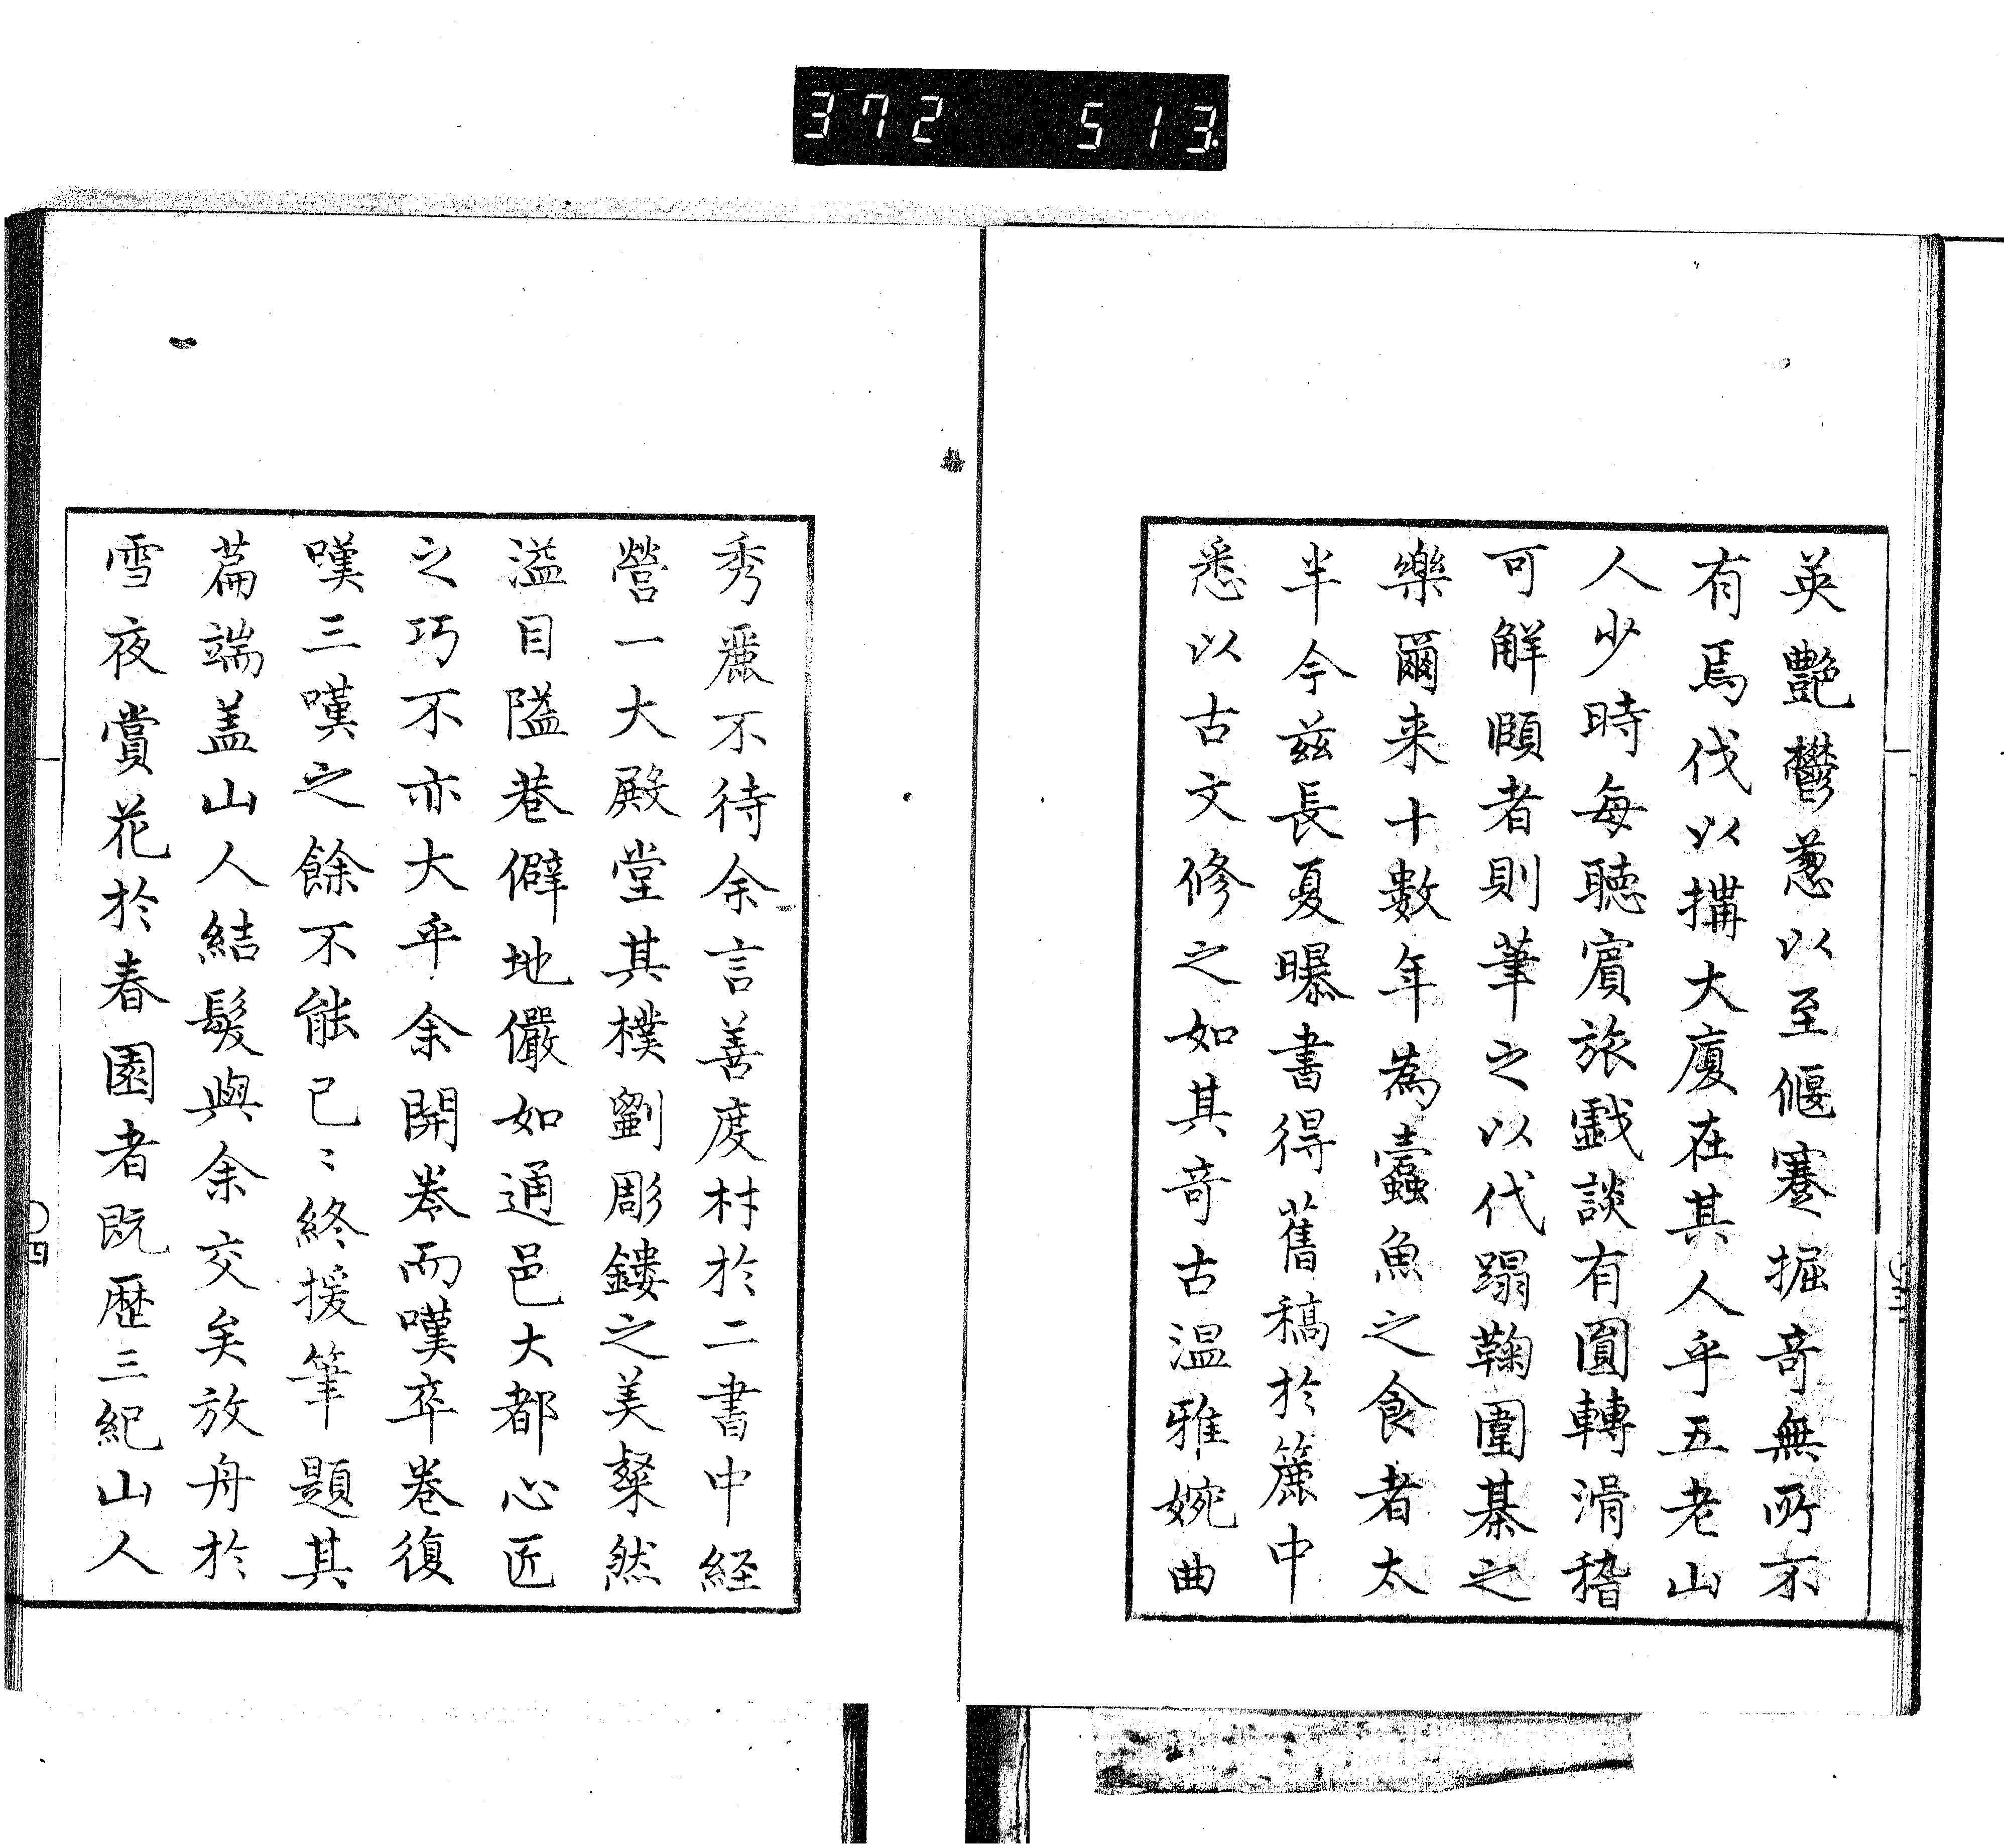 372 513
英艷鬱葱以至偃蹇掘奇無所不
有焉伐以搆大廈在其人乎五老山
人少時每聽賓旅戯談有圓轉滑稽
可解頤者則筆之以代蹋鞠圍棊之
樂爾来十數年為蠹魚之食者太
半今兹長夏曝書得舊稿於簏中
悉以古文修之如其奇古温雅婉曲
三
秀麗不待余言善度材於二書中経
營一大殿堂其樸劉彫鏤之美粲然
溢目隘巷僻地儼如通邑大都心匠
之巧不亦大乎余開巻而嘆卒巻復
嘆三嘆之餘不能已〻終援筆題其
萹端盖山人結髮與余交矣放舟於
雪夜賞花於春園者既歴三紀山人
〇四